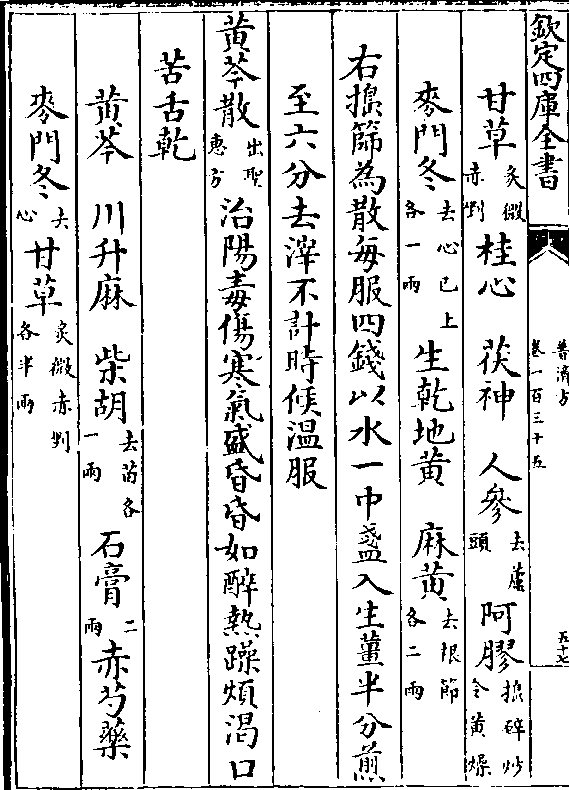 欽定四庫全書
普濟方
卷一百三十五
五十七
甘草炙微赤剉 桂心 茯神 人參去蘆頭 阿膠搗碎炒令黃燥
麥門冬去心已上各一兩 生乾地黃 麻黃去根節各二兩
右搗篩為散每服四錢以水一中盞入生薑半分煎
至六分去滓不計時候溫服
黃芩散出聖惠方治陽毒傷寒氣盛昏昏如醉熱躁煩渴口
苦舌乾
黃芩 川升麻 柴胡去苗各一兩 石膏二兩 赤芍藥
麥門冬去心 甘草炙微赤剉各半兩